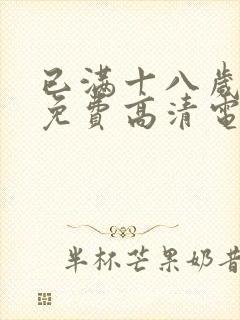 已满十八岁
免費高清電
半杯芒果奶昔